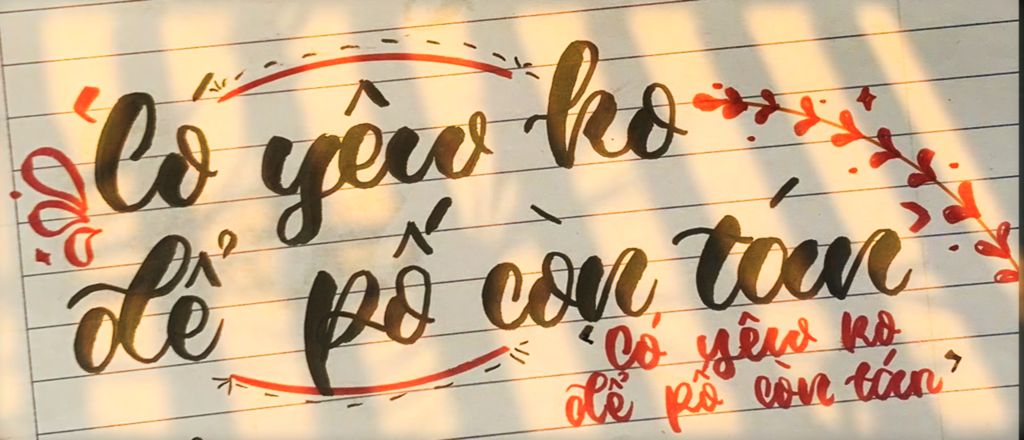 'Có yêu ko
để pố còn tán'
'Có yêu ko
để pố còn tán'